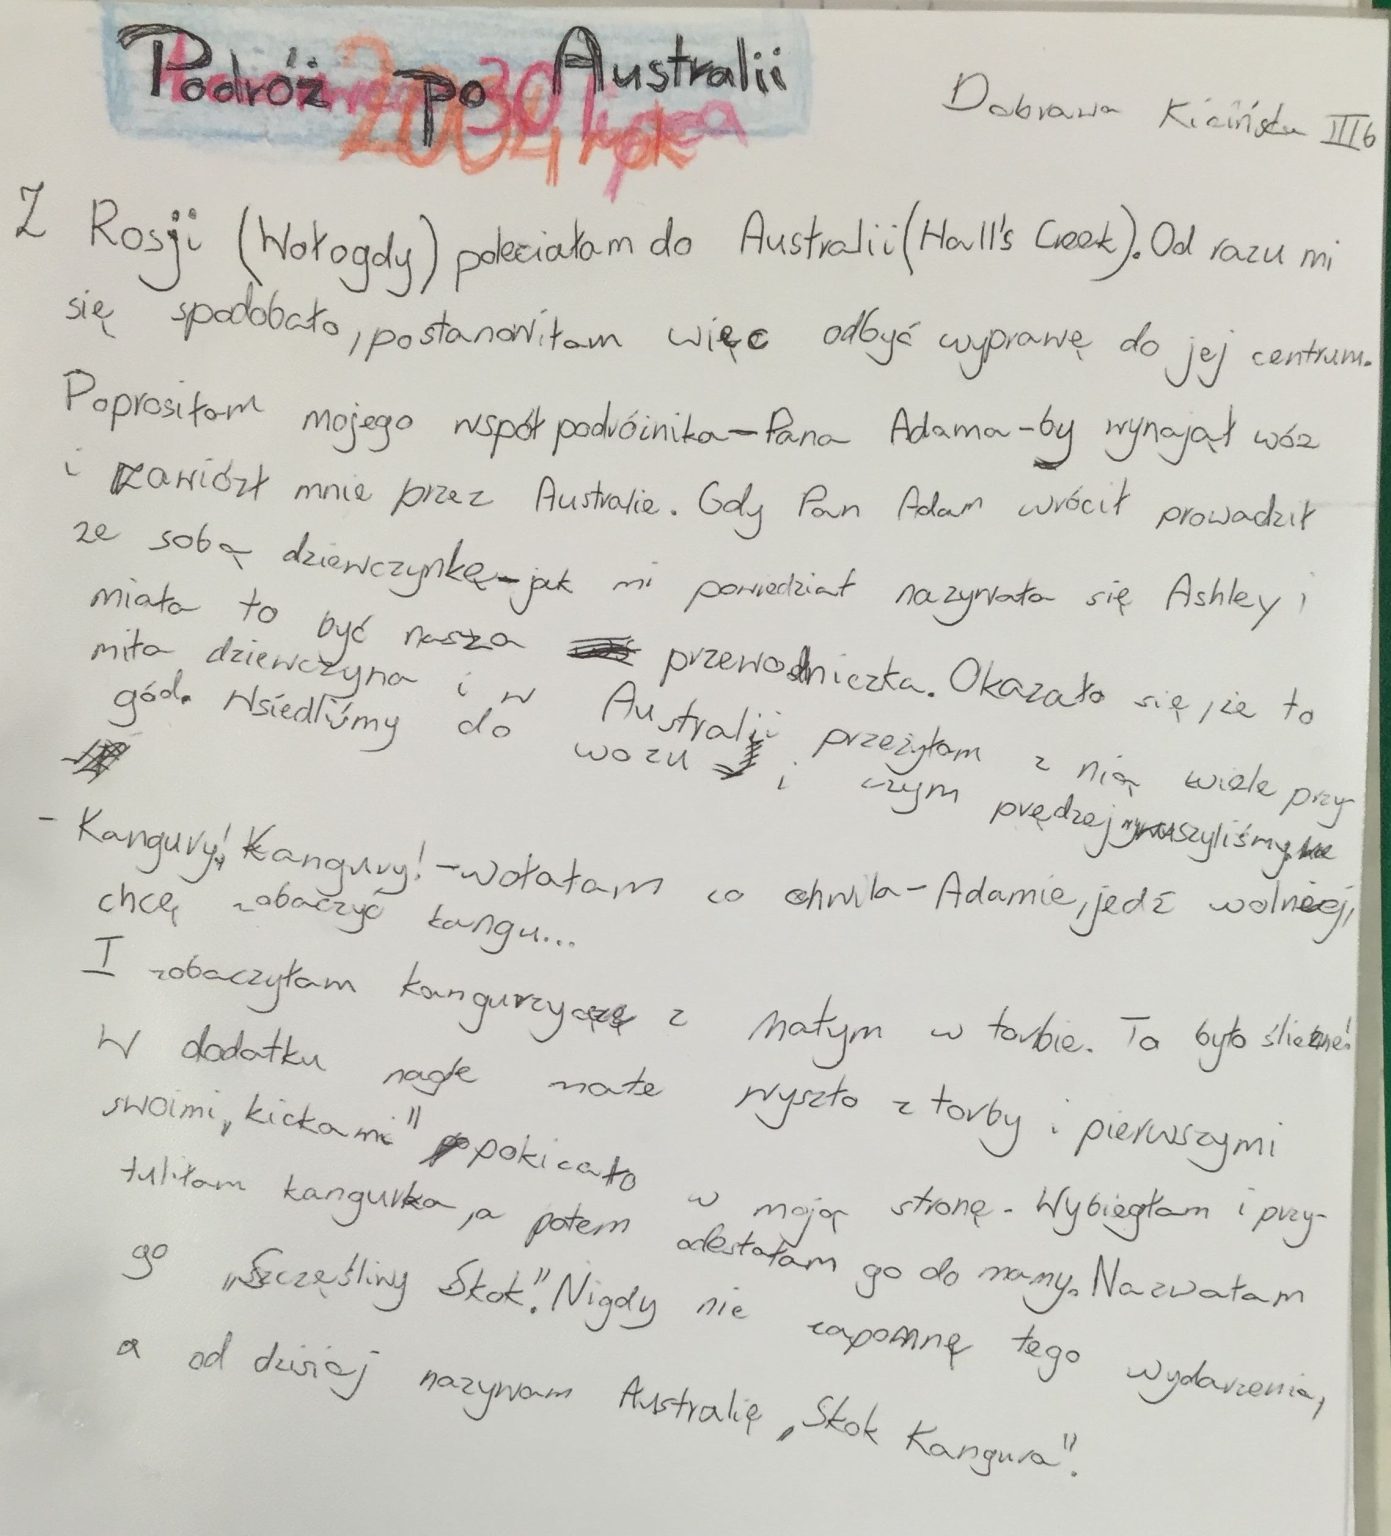 Podróż po Australii
30 lipca
2004 rok
Dobrawa Kicińska III b
Z Rosji (Wołogdy) poleciałam do Australii (Hall's Creek). Od razu mi
się spodobało, postanowiłam więc odbyć wyprawę do jej centrum.
Poprosiłam mojego współpodróżnika - Pana Adama - by wynajął wóz
i zawiózł mnie przez Australię. Gdy Pan Adam wrócił prowadził
ze sobą dziewczynkę - jak mi powiedział nazywała się Ashley i
miała to być nasza przewodniczka. Okazało się, że to
miła dziewczyna i w Australii przeżyłam z nią wiele przy-
gód. Wsiedliśmy do wozu i czym prędzej wyruszyliśmy.
- Kangury! Kangury! - wołałam co chwila - Adamie, jedź wolniej,
chcę zobaczyć kangu...
I zobaczyłam kangurzycę z małym w torbie. To było śliczne!
W dodatku nagle małe wyszło z torby i pierwszymi
swoimi „kickami" pokicało w moją stronę. Wybiegłam i przy-
tuliłam kangurka, a potem odesłałam go do mamy. Nazwałam
go „Szczęśliwy Skok". Nigdy nie zapomnę tego wydarzenia,
a od dzisiaj nazywam Australię „Skok Kangura".